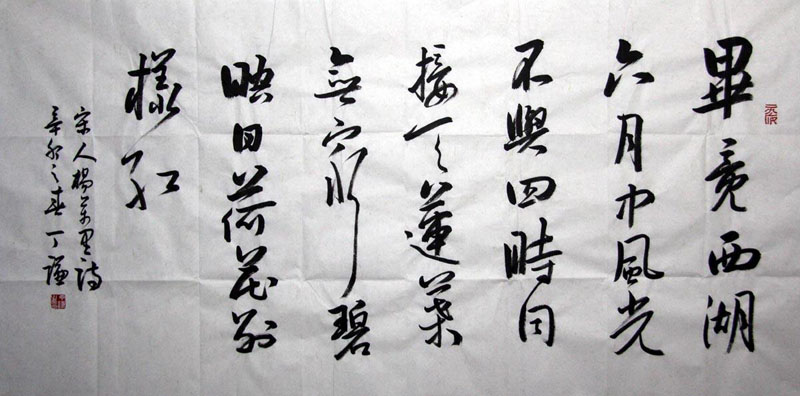 畢竟西湖
六月中風光
不與四時同
接天蓮葉
無窮碧
映日荷花別
樣紅
宋人楊萬里詩
辛卯之春丁謙